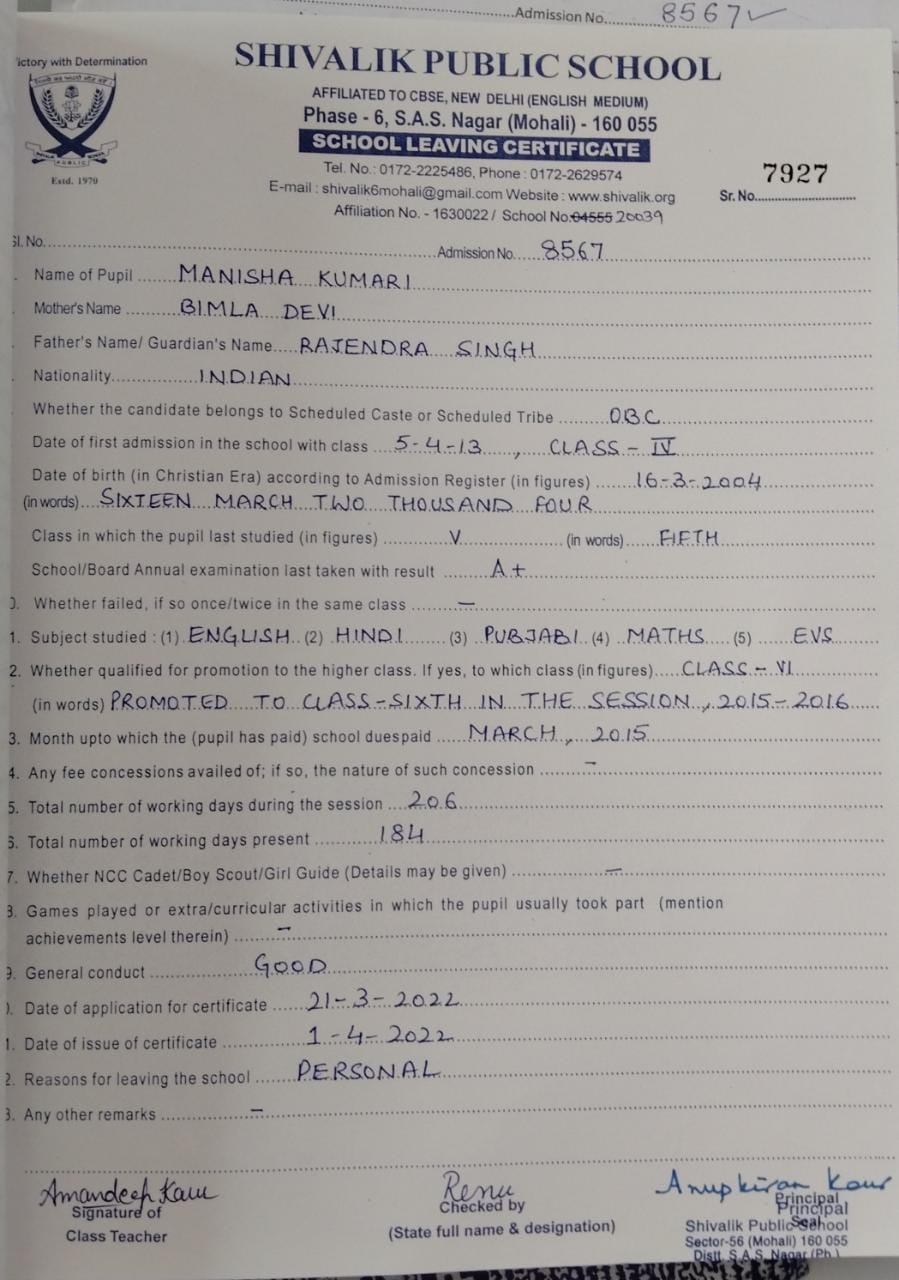 Admission No. 8567
ictory with Determination
SHIVALIK PUBLIC SCHOOL
AFFILIATED TO CBSE, NEW DELHI (ENGLISH MEDIUM)
Phase - 6, S.A.S. Nagar (Mohali) - 160 055
SCHOOL LEAVING CERTIFICATE
PUBLIC
Estd. 1970
Tel. No.: 0172-2225486, Phone : 0172-2629574
E-mail : shivalik6mohali@gmail.com Website : www.shivalik.org
7927
Sr. No.
Affiliation No. - 1630022 / School No. 04555 20039
Sl. No. Admission No. 8567
Name of Pupil MANISHA KUMARI
Mother's Name BIMLA DEVI
Father's Name/ Guardian's Name RAJENDRA SINGH
Nationality INDIAN
Whether the candidate belongs to Scheduled Caste or Scheduled Tribe OBC
Date of first admission in the school with class 5-4-13, CLASS - IV
Date of birth (in Christian Era) according to Admission Register (in figures) 16-3-2004
(in words) SIXTEEN MARCH TWO THOUSAND FOUR
Class in which the pupil last studied (in figures) V (in words) FIFTH
School/Board Annual examination last taken with result A+
0. Whether failed, if so once/twice in the same class —
1. Subject studied : (1) ENGLISH (2) HINDI (3) PUBJABI (4) MATHS (5) EVS
2. Whether qualified for promotion to the higher class. If yes, to which class (in figures) CLASS - VI
(in words) PROMOTED TO CLASS-SIXTH IN THE SESSION, 2015-2016
3. Month upto which the (pupil has paid) school duespaid MARCH, 2015
4. Any fee concessions availed of; if so, the nature of such concession —
5. Total number of working days during the session 206
6. Total number of working days present 184
7. Whether NCC Cadet/Boy Scout/Girl Guide (Details may be given) —
8. Games played or extra/curricular activities in which the pupil usually took part (mention
achievements level therein) —
9. General conduct GOOD
0. Date of application for certificate 21-3-2022
1. Date of issue of certificate 1-4-2022
2. Reasons for leaving the school PERSONAL
3. Any other remarks —
Amandeep Kaur Renu Anupkiran Kaur
Signature of Checked by Principal
Principal
Class Teacher (State full name & designation) Seal
Shivalik Public School
Sector-56 (Mohali) 160 055
Distt. S.A.S. Nagar (Pb.)